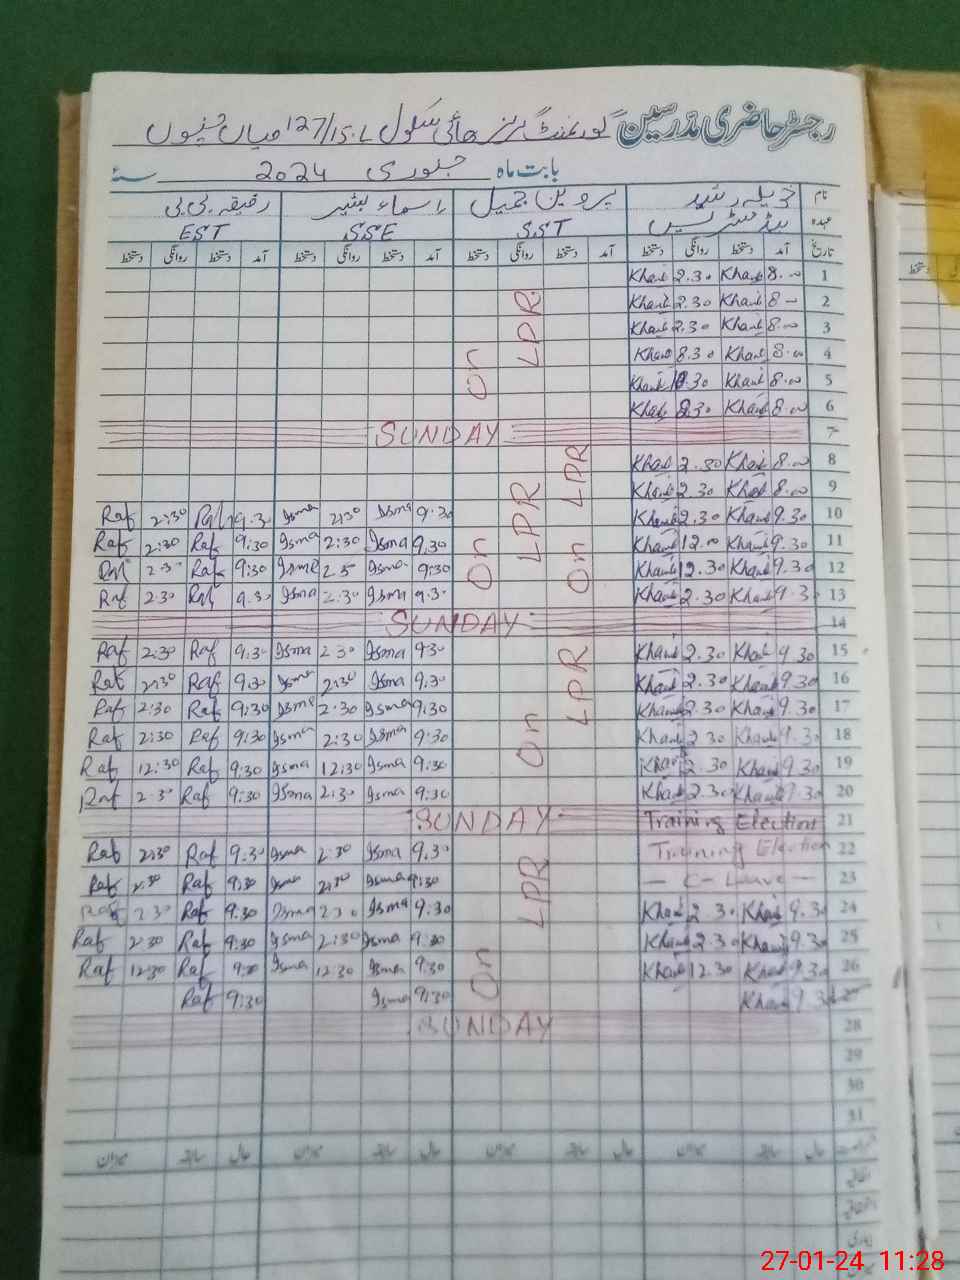 رجسٹر حاضری مدرسین گورنمنٹ گرلز ہائی سکول 127/15.L میاں چنوں
بابت ماہ جنوری 2024 سنہ
نام پروین جمیل اسماء بشیر رفیقہ بی بی
عہدہ ہیڈ مسٹریس SST SSE EST
تاریخ آمد دستخط روانگی دستخط آمد دستخط روانگی دستخط آمد دستخط روانگی دستخط آمد دستخط روانگی دستخط
1 8.00 Khan 2.30 Khan
2 8 - Khan 2.30 Khan
3 8.00 Khan 2.30 Khan
4 8.00 Khan 8.30 Khan
5 8.00 Khan Khan
6 8.00 Khan Khan
On LPR
7 SUNDAY
8 8.00 Khan 2.30 Khan
9 8.00 Khan 2.30 Khan
10 9.30 Khan 2.30 Khan 9.30 Isma 2:30 Isma 9.30 Raf 2:30 Raf
11 9.30 Khan 12.00 Khan 9.30 Isma 2:30 Isma 9:30 Raf 2:30 Raf
12 9.30 Khan 12.30 Khan 9:30 Isma Isma 9:30 Raf 2.30 Raf
13 9.30 Khan 2.30 Khan 9.30 Isma 2:30 Isma 9.30 Raf 2.30 Raf
On LPR On LPR
14 SUNDAY
15 9.30 Khan 2.30 Khan 9:30 Isma 2:30 Isma 9:30 Raf 2:30 Raf
16 9.30 Khan 2.30 Khan 9.30 Isma 2:30 Isma 9.30 Raf 2:30 Raf
17 9.30 Khan 2.30 Khan 9.30 Isma 2.30 Isma 9:30 Raf 2:30 Raf
18 9.30 Khan 2.30 Khan 9:30 Isma 2:30 Isma 9:30 Raf 2:30 Raf
19 9.30 Khan 2.30 Khan 9:30 Isma 12:30 Isma 9:30 Raf 12:30 Raf
20 9.30 Khan 2.30 Khan 9:30 Isma 2:30 Isma 9:30 Raf 2.30 Raf
On LPR
21 Training Election SUNDAY
22 Training Election 9.30 Isma 2:30 Isma 9.30 Raf 2:30 Raf
23 — C- Leave — 9:30 Isma 2:30 Isma 9:30 Raf 2.30 Raf
24 9.30 Khan 2.30 Khan 9.30 Isma 2:30 Isma 9.30 Raf 2.30 Raf
25 9.30 Khan 2.30 Khan 9:30 Isma 2:30 Isma 9:30 Raf 2:30 Raf
26 9.30 Khan 12.30 Khan 9.30 Isma 12:30 Isma 9:30 Raf 12:30 Raf
27 9.30 Khan 9:30 Isma 9:30 Raf
On LPR
28 SUNDAY
29
30
31
حال سابقہ میزان حال سابقہ میزان حال سابقہ میزان حال سابقہ میزان
اتفاقیہ
27-01-24 11:28